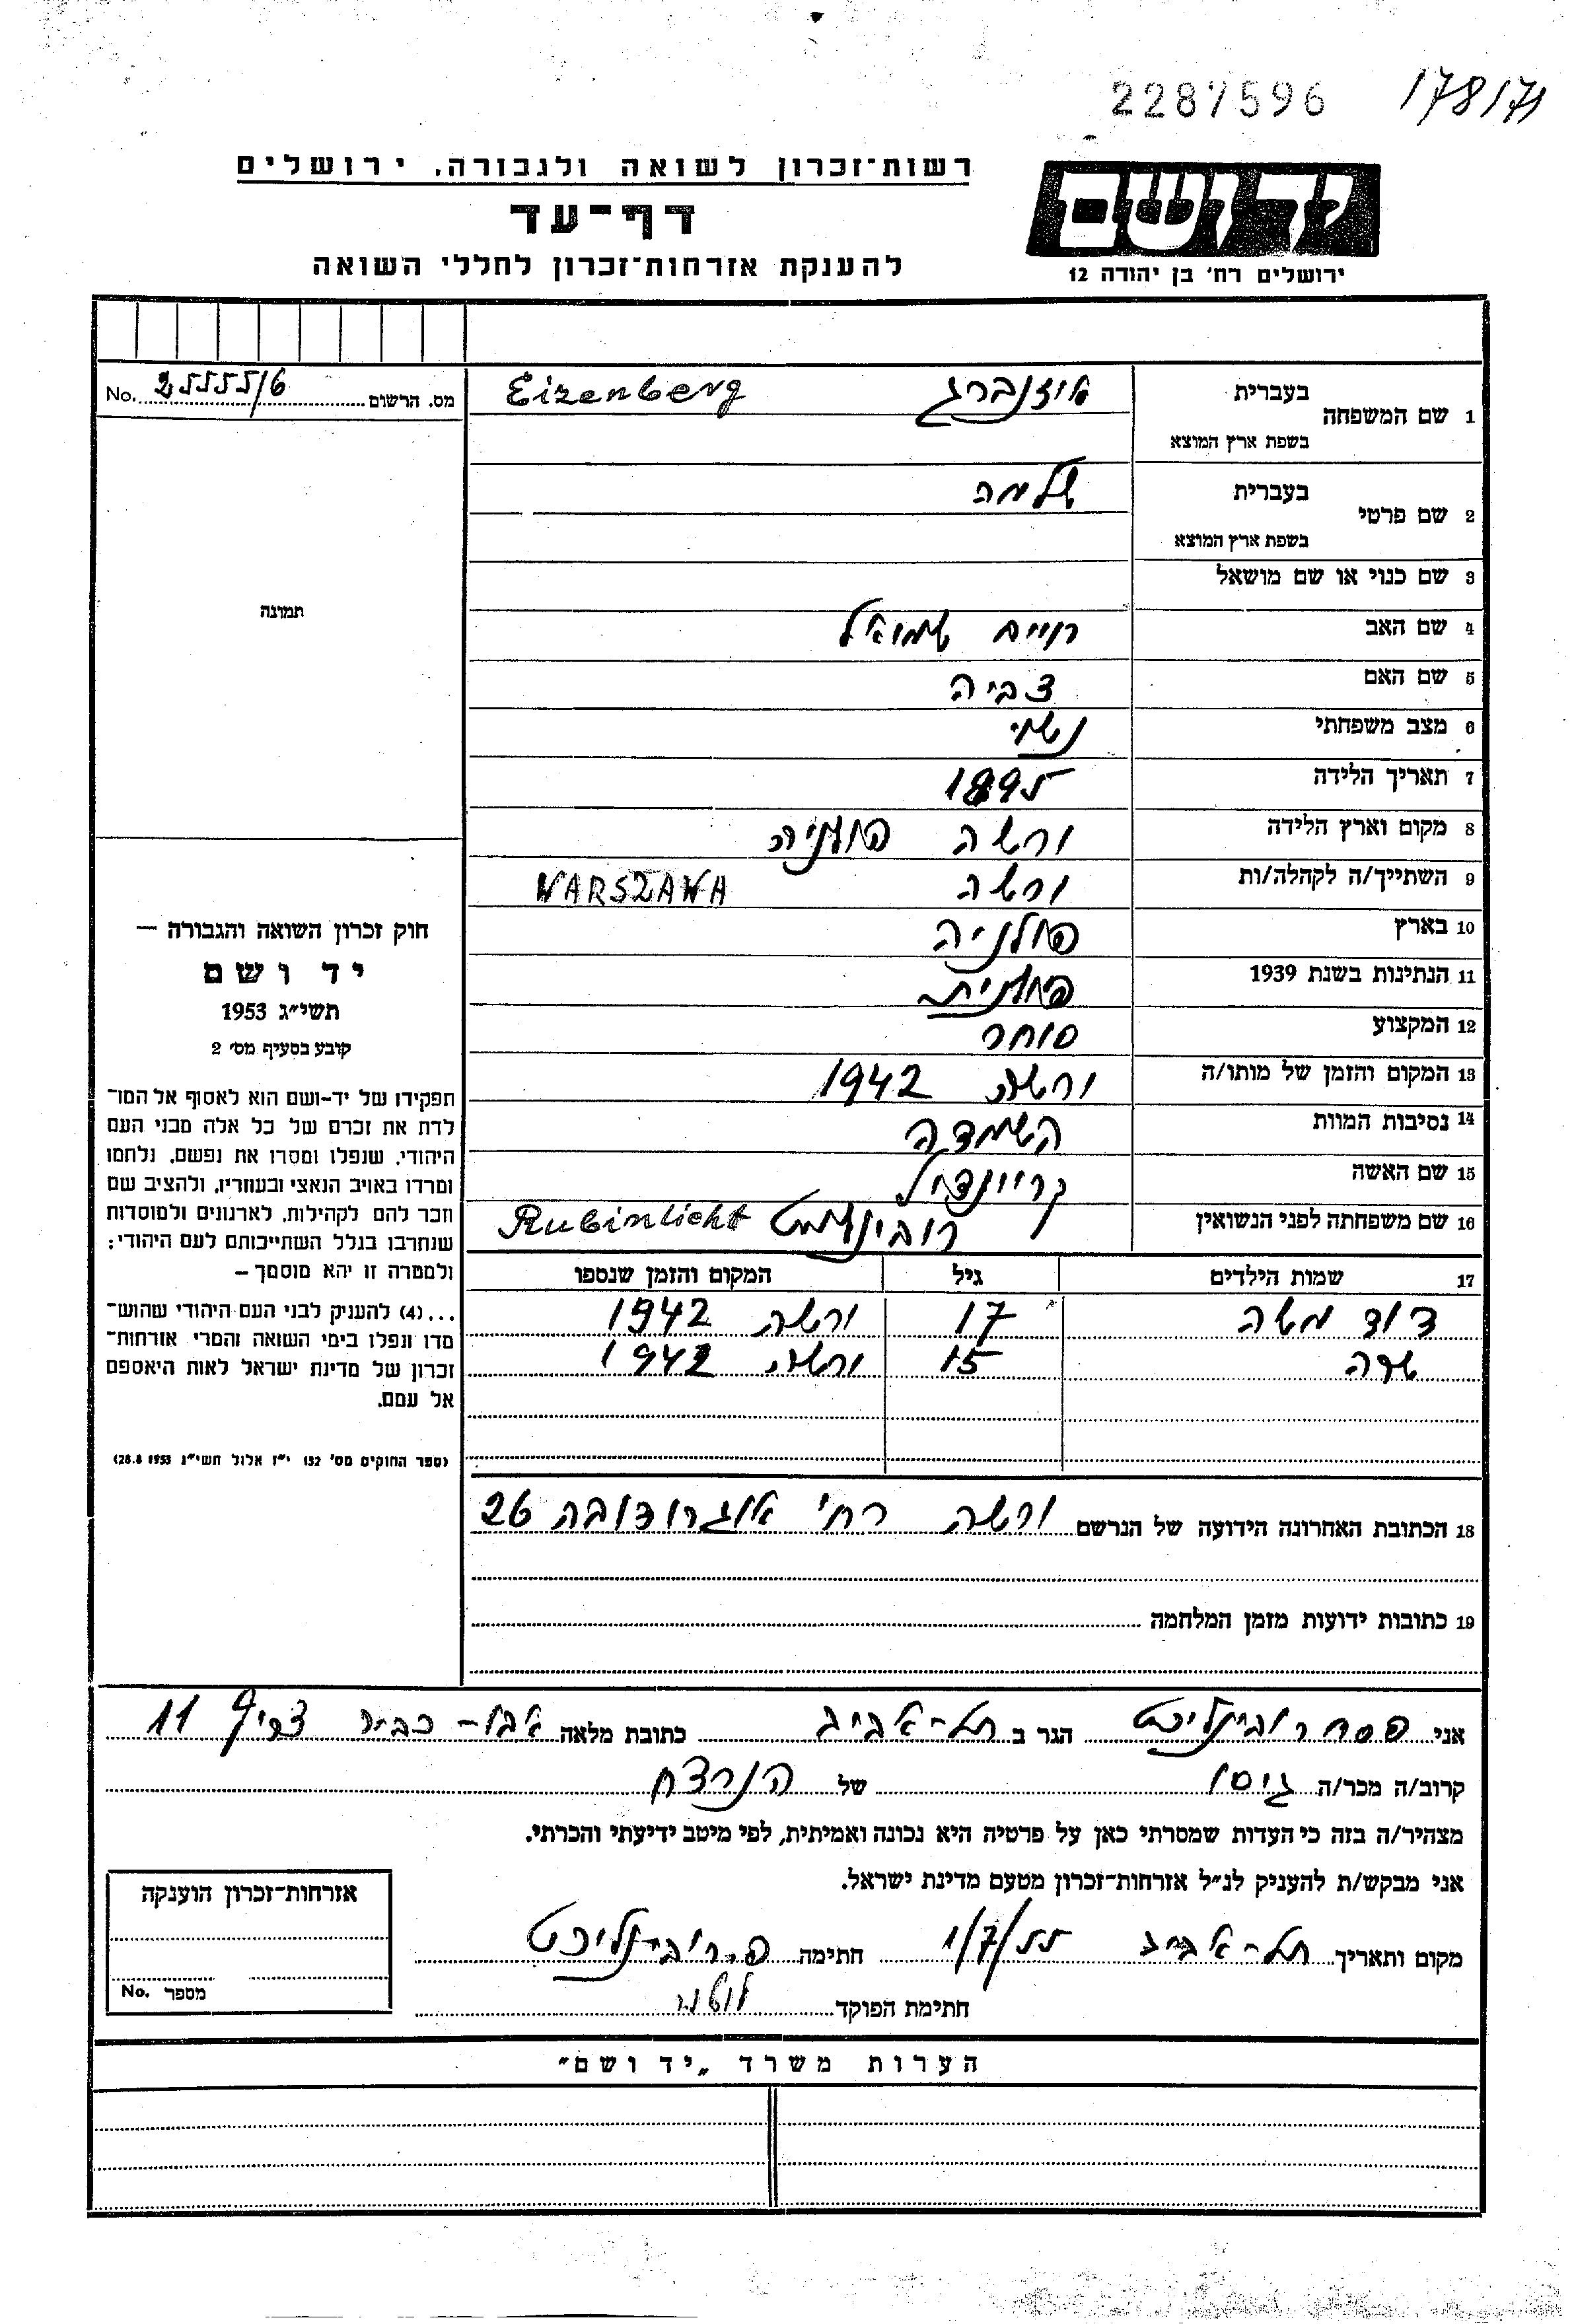 2287596
178/71
רשות־זכרון לשואה ולגבורה, ירושלים
דף־עד
להענקת אזרחות־זכרון לחללי השואה
יד ושם
ירושלים רח' בן יהודה 12
מס. הרשום 25555/6 No.
תמונה
חוק זכרון השואה והגבורה —
יד ושם
תשי״ג 1953
קובע בסעיף מס׳ 2
תפקידו של יד-ושם הוא לאסוף אל המו־
לדת את זכרם של כל אלה מבני העם
היהודי, שנפלו ומסרו את נפשם, נלחמו
ומרדו באויב הנאצי ובעוזריו, ולהציב שם
וזכר להם לקהילות, לארגונים ולמוסדות
שנחרבו בגלל השתייכותם לעם היהודי;
ולמטרה זו יהא מוסמך –
...(4) להעניק לבני העם היהודי שהוש־
מדו ונפלו בימי השואה והמרי אזרחות־
זכרון של מדינת ישראל לאות היאספם
אל עמם.
(ספר החוקים מס' 132 י״ז אלול תשי״ג 28.8.1953)
1 שם המשפחה בעברית איזנברג Eizenberg
בשפת ארץ המוצא
2 שם פרטי בעברית שלמה
בשפת ארץ המוצא
3 שם כנוי או שם מושאל
4 שם האב חיים שמואל
5 שם האם צביה
6 מצב משפחתי נשוי
7 תאריך הלידה 1895
8 מקום וארץ הלידה ורשה פולניה
9 השתייך/ה לקהלה/ות ורשה WARSZAWA
10 בארץ פולניה
11 הנתינות בשנת 1939 פולנית
12 המקצוע סוחר
13 המקום והזמן של מותו/ה ורשה 1942
14 נסיבות המוות השמדה
15 שם האשה קריינדול
16 שם משפחתה לפני הנשואין רובינליכט Rubinlicht
17 שמות הילדים גיל המקום והזמן שנספו
דוד משה 17 ורשה 1942
שרה 15 ורשה 1942
18 הכתובת האחרונה הידועה של הנרשם ורשה רח' אוגרודובה 26
19 כתובות ידועות מזמן המלחמה
אני פסח רובינליכט הגר ב תל-אביב כתובת מלאה אבו-כביר צריף 11
קרוב/ה מכר/ה גיסו של הנרצח
מצהיר/ה בזה כי העדות שמסרתי כאן על פרטיה היא נכונה ואמיתית, לפי מיטב ידיעתי והכרתי.
אני מבקש/ת להעניק לנ״ל אזרחות־זכרון מטעם מדינת ישראל.
מקום ותאריך תל-אביב 1/7/55 חתימה פ. רובינליכט
חתימת הפוקד
אזרחות־זכרון הוענקה
מספר No.
הערות משרד „יד ושם״